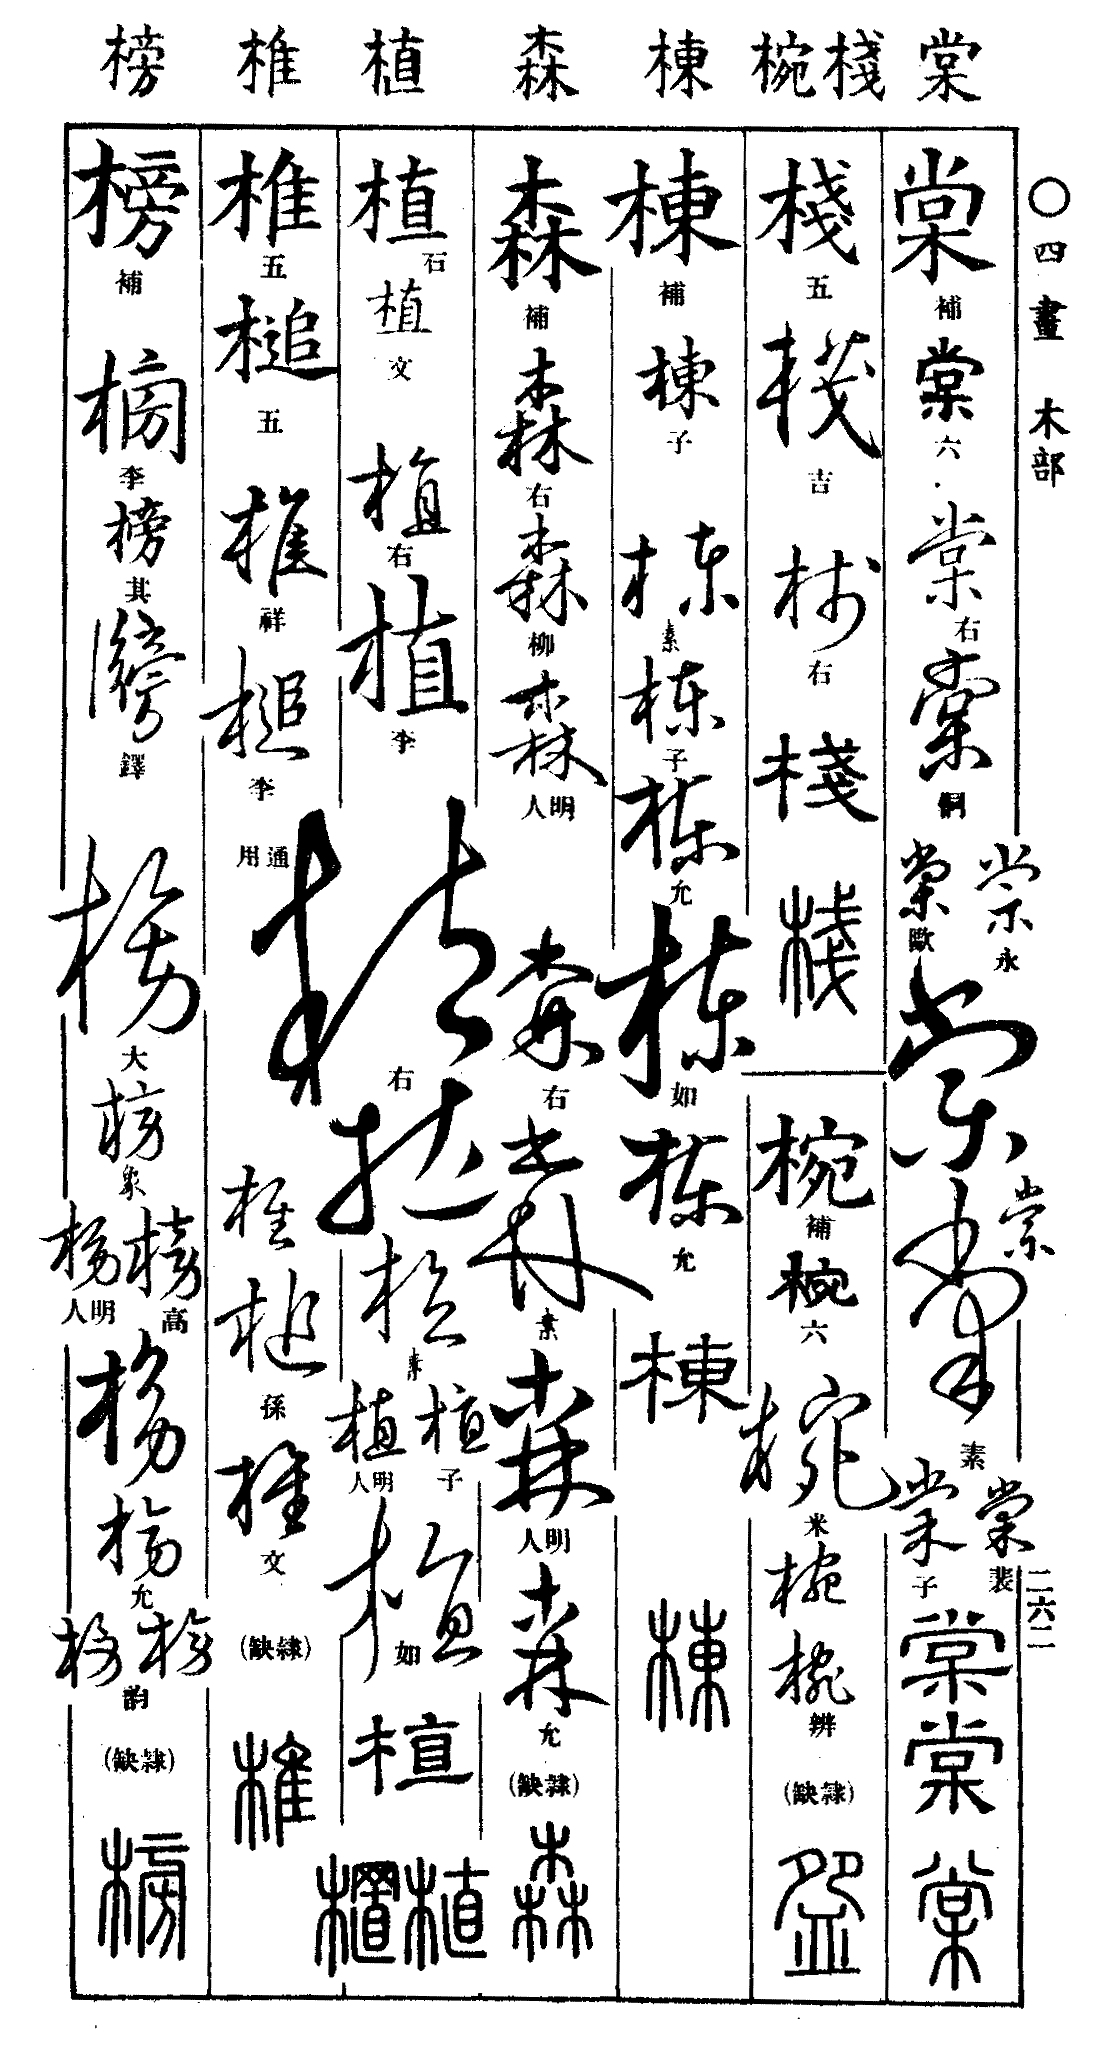 ○四畫 木部
二六二
棠 棧 椀 棟 森 植 椎 榜
棠 補
棠 六
棠 右
棠 侗
棠 永
棠 歐
棠
棠
棠 素
棠 裴
棠 子
棠
棠
棠
棧 五
棧 吉
棧 右
棧
棧
椀 補
椀 六
椀 米
椀
椀 辨
(隸缺)
盌
棟 補
棟 子
棟 素
棟 子
棟 允
棟 如
棟 允
棟
棟
森 補
森 右
森 柳
森 明人
森 右
森 素
森 明人
森 允
(隸缺)
森
植 石
植 文
植 右
植 李
植 右
植
植 素
植 子
植 明人
植 如
植
植
櫃
椎 五
槌 五
椎 祥
槌 李
通用
椎
槌 孫
椎 文
(隸缺)
椎
榜 補
榜 李
榜 其
榜 鐸
榜 大
榜 象
榜 高
榜 明人
榜
榜 允
榜
榜 韵
(隸缺)
榜